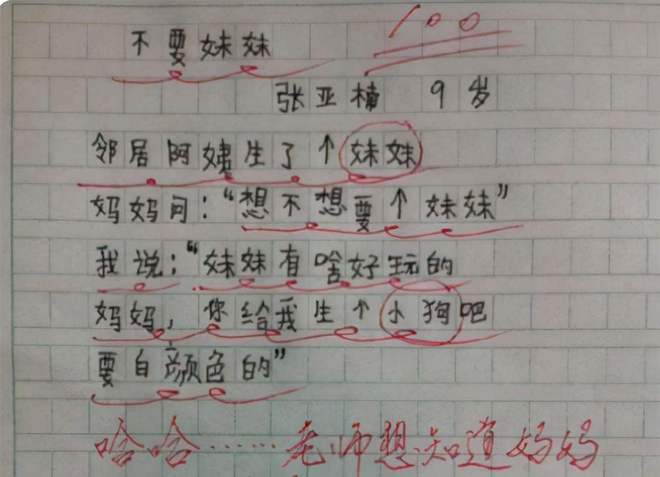 100
不要妹妹
张亚楠 9岁
邻居阿姨生了个妹妹
妈妈问:“想不想要个妹妹”
我说:“妹妹有啥好玩的
妈妈,你给我生个小狗吧
要白颜色的”
哈哈……老师想知道妈妈